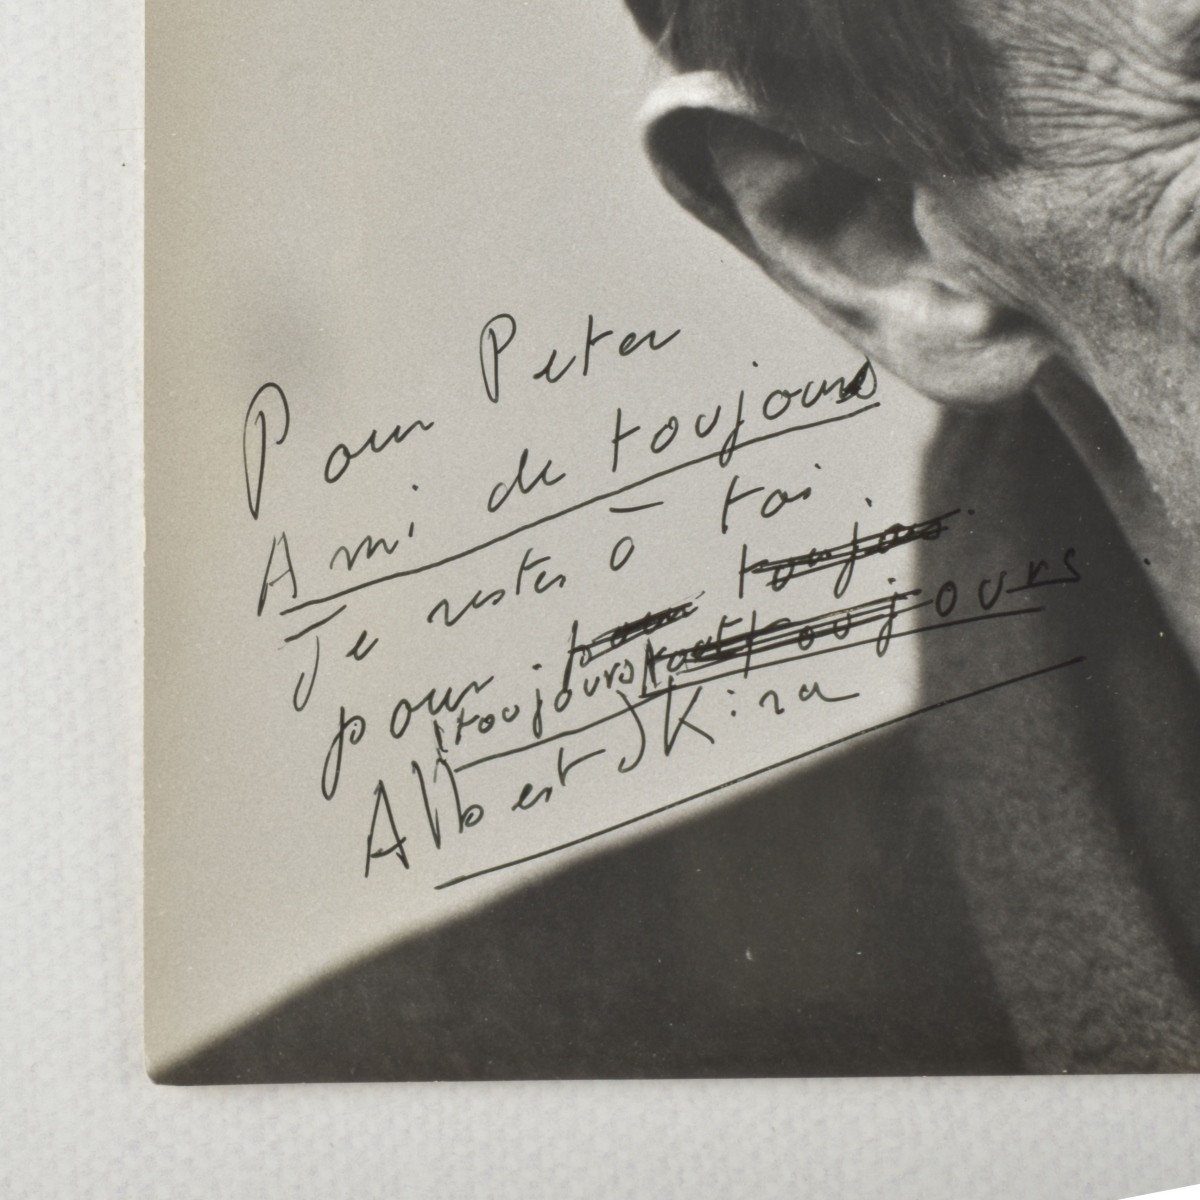 Pour Peter
Ami de toujours
Je restes à toi
pour toujours
toujours
Albert Skira